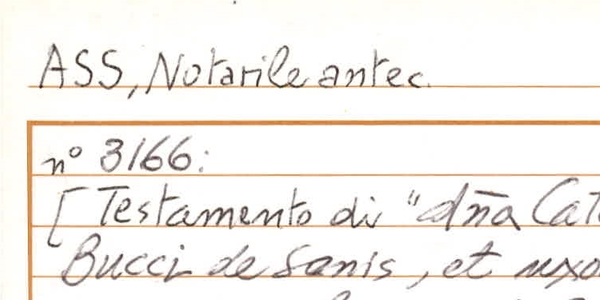 ASS, Notarile antec.
n° 3166:
[Testamento di "dña Cat
Bucci de Senis, et uxo